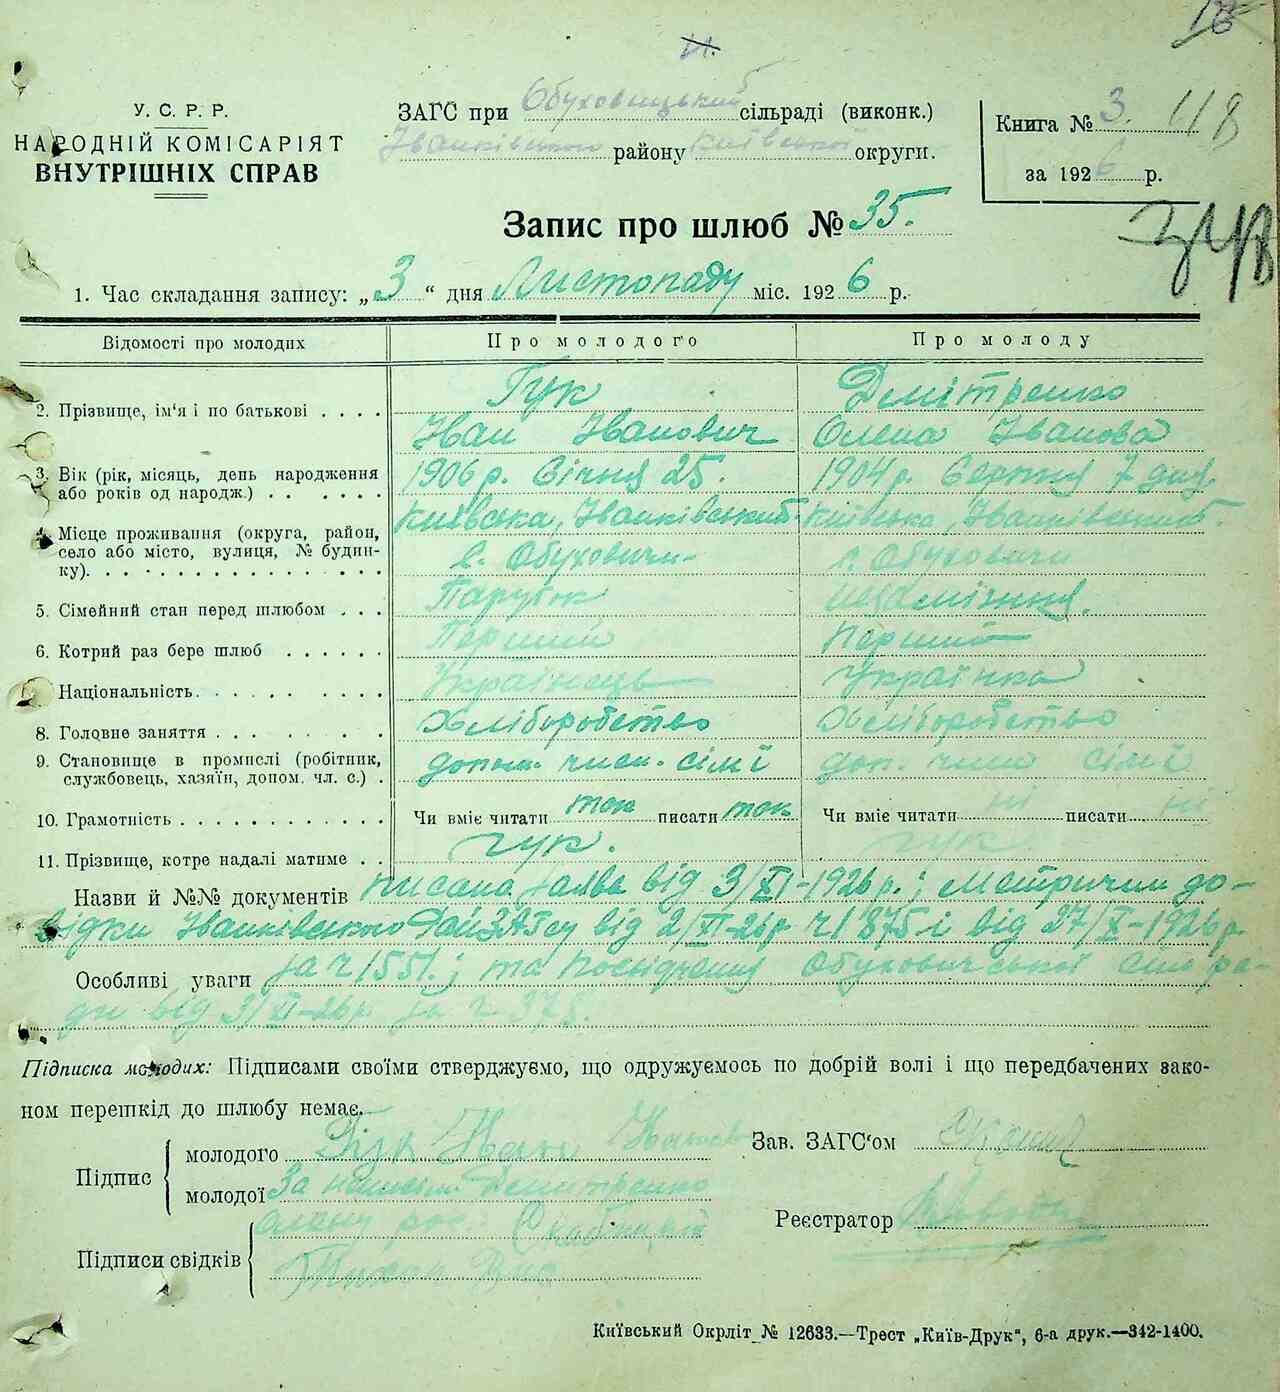 У. С. Р. Р.
НАРОДНІЙ КОМІСАРІЯТ
ВНУТРІШНІХ СПРАВ
ЗАГС при Обуховицькій сільраді (виконк.)
Іванківського району Київської округи.
Книга № 3. 118
за 1926 р.
348
Запис про шлюб № 35.
1. Час складання запису: „3“ дня Листопаду міс. 1926 р.
Відомості про молодих Про молодого Про молоду
2. Прізвище, ім'я і по батькові . . . . Гук Дмітренко
Іван Іванович Олена Іванова
3. Вік (рік, місяць, день народження або років од народж.) . . . . . . 1906 р. Січня 25. 1904 р. Серпня 7 дня.
4. Місце проживання (округа, район, село або місто, вулиця, № будинку). Київська, Іванківський Київська, Іванківський
с. Обуховичи с. Обуховичи
5. Сімейний стан перед шлюбом . . . Парубок незаміжня.
6. Котрий раз бере шлюб . . . . . . Перший Перший
Національність. . . . . . . . . . Українець Українка
8. Головне заняття . . . . . . . . Хліборобство Хліборобство
9. Становище в промислі (робітник, службовець, хазяїн, допом. чл. с.) . допом. член. сім'ї доп. член сім'ї
10. Грамотність . . . . . . . . . . . . Чи вміє читати так писати так Чи вміє читати ні писати ні
11. Прізвище, котре надалі матиме . . Гук. Гук
Назви й №№ документів писана заява від 3/XI-1926 р.; Метричним до-
відки Іванківського РайЗАГсу від 2/XI-26р ч 1875 і від 27/X-1926р.
Особливі уваги за ч 1551.; та посвідчення Обуховичської сільра-
ди від 3/XI-26р. за ч 378.
Підписка молодих: Підписами своїми стверджуємо, що одружуємось по добрій волі і що передбачених зако-
ном перешкід до шлюбу немає.
Підпис молодого Гук Иван
Зав. ЗАГС'ом
молодої За Дмитренко
Реєстратор
Підписи свідків
Київський Окрліт № 12633.—Трест „Київ-Друк“, 6-а друк.—342-1400.